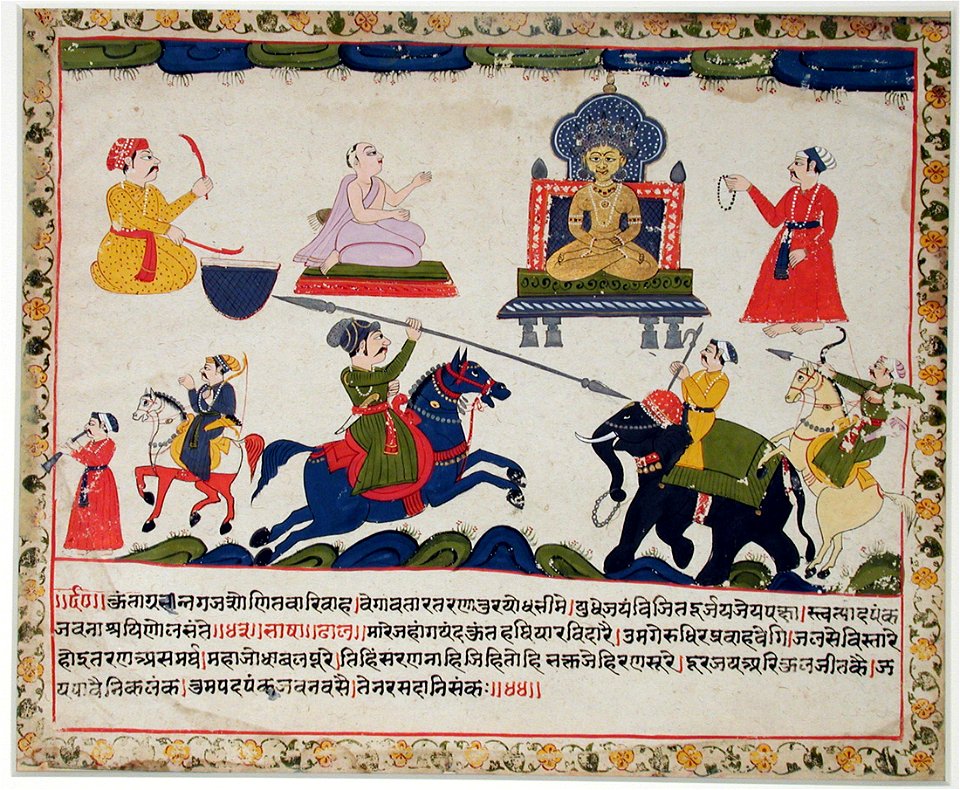 ॥र्द०॥ कुंताग्रभिन्नगजशोणितवारिवाह।वेगावतारतरणातुरयोधभीमे।युधेजयंविजितदुर्जयजेयपक्षा।स्त्वत्पादपंक
जवनाश्रयिणोलभंते॥४३॥भाषा॥ढाल॥मारेजहांगयंदकुंभहथियारविदारै।उमगेरुधिरप्रवाहवेगि।जलसेविस्तारे
होइतरणअसमर्थ।महाजोधाबलपूरे।तिहिंसरणनाहिजिहितोहिभक्तजेहिरणसूरे।दुरजयअरिकुलजीतकै।ज
यपावैनिकलंक।तुमपदपंकजवनवसै।तेनरसदानिसंकः॥४४॥